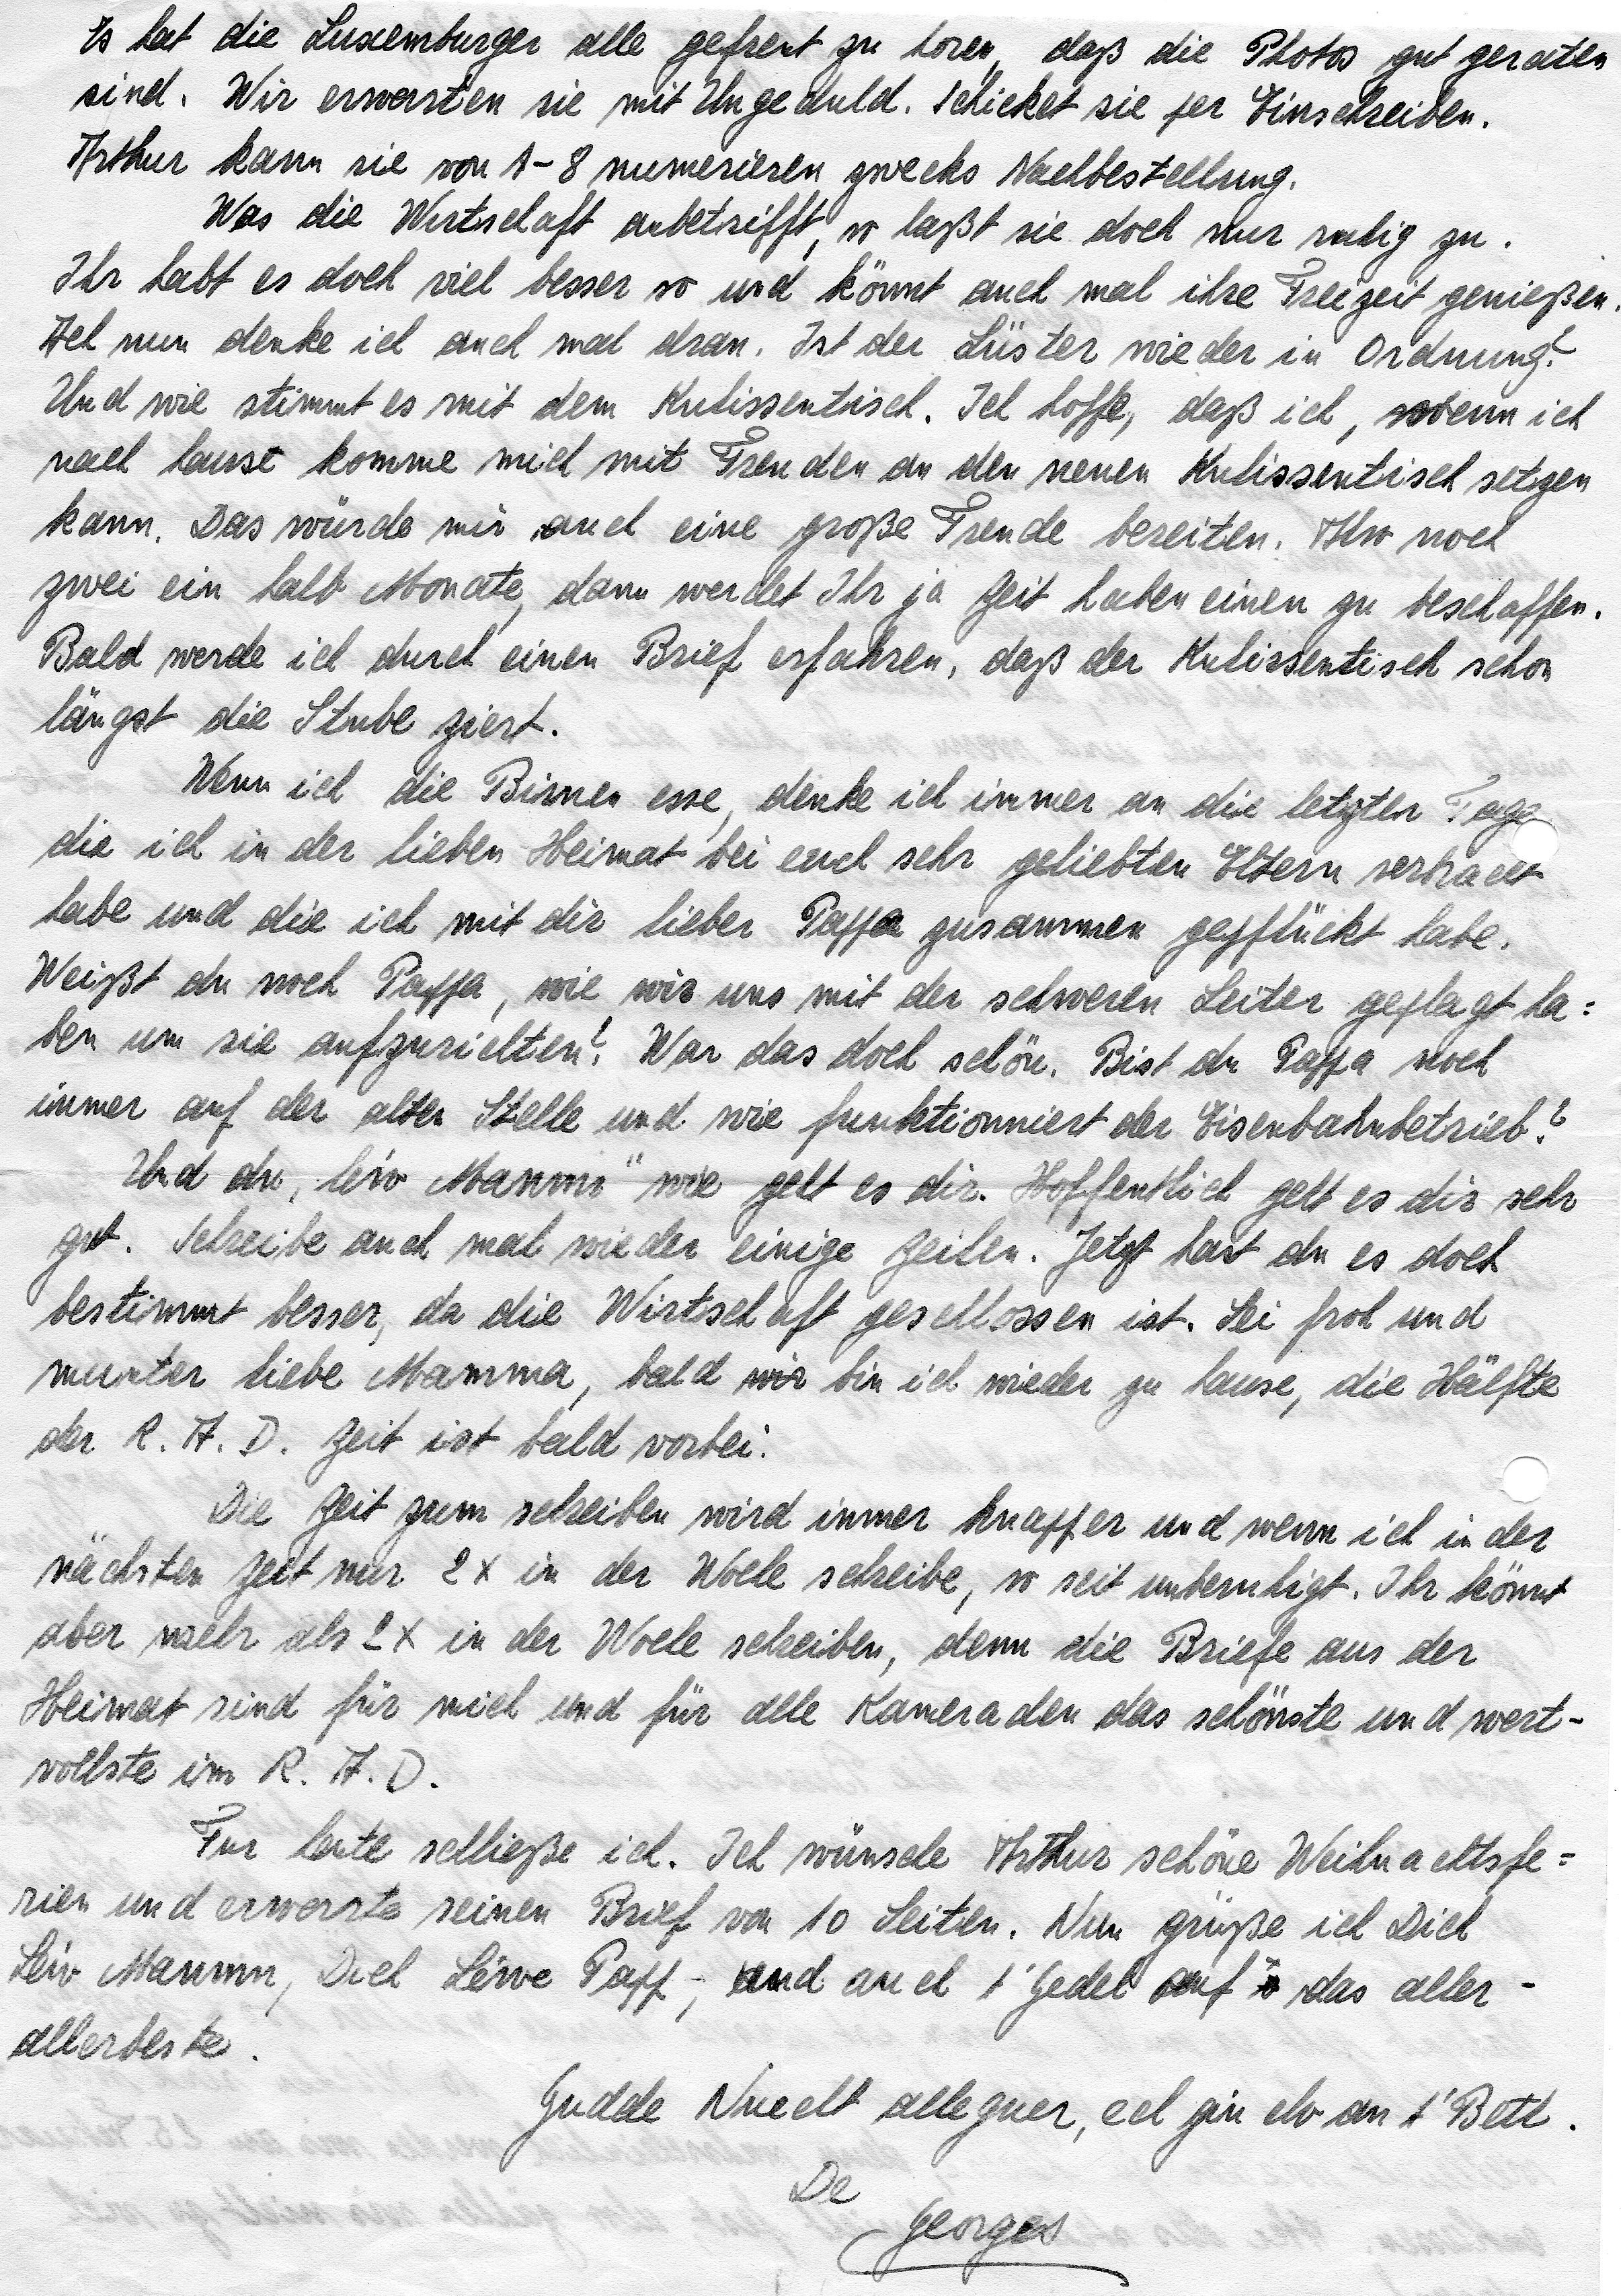 Es hat die Luxemburger alle gefreut zu hören, daß die Photos gut geraten
sind. Wir erwarten sie mit Ungeduld. Schicket sie per Einschreiben.
Arthur kann sie von 1-8 numerieren zwecks Nachbestellung.
Was die Wirtschaft anbetrifft, so laßt sie doch nur ruhig zu.
Ihr habt es doch viel besser so und könnt auch mal ihre Freizeit genießen.
Ach nun denke ich auch mal dran. Ist der Lüster wieder in Ordnung?
Und wie stimmt es mit dem Kulissentisch. Ich hoffe, daß ich, wenn ich
nach hause komme mich mit Freuden an den neuen Kulissentisch setzen
kann. Das würde mir auch eine große Freude bereiten. Also noch
zwei ein halb Monate, dann werdet Ihr ja Zeit haben einen zu beschaffen.
Bald werde ich durch einen Brief erfahren, daß der Kulissentisch schon
längst die Stube ziert.
Wenn ich die Birnen esse, denke ich immer an die letzten Tage
die ich in der lieben Heimat bei euch sehr geliebten Eltern verbracht
habe und die ich mit dir lieber Pappa zusammen gepflückt habe.
Weißt du noch Pappa, wie wir uns mit der schweren Leiter geplagt ha=
ben um sie aufzurichten? War das doch schön. Bist du Pappa noch
immer auf der alten Stelle und wie funktionniert der Eisenbahnbetrieb?
Und du, léiv Mamm" wie geht es dir. Hoffentlich geht es dir sehr
gut. Schreibe auch mal wieder einige Zeilen. Jetzt hast du es doch
bestimmt besser, da die Wirtschaft geschlossen ist. Sei froh und
munter liebe Mamma, bald wir bin ich wieder zu hause, die Hälfte
der R. A. D. Zeit ist bald vorbei.
Die Zeit zum schreiben wird immer knapper und wenn ich in der
nächsten Zeit nur 2x in der Woche schreibe, so seit unberuhigt. Ihr könnt
aber mehr als 2x in der Woche schreiben, denn die Briefe aus der
Heimat sind für mich und für alle Kameraden das schönste und wert-
vollste im R. A. D.
Fur heute schließe ich. Ich wünsche Arthur schöne Weihnachtsfe=
rien und erwarte seinen Brief von 10 Seiten. Nun grüße ich Dich
Léiv Mamm, Dich Léiwe Papp, und auch t'Gedel auf das aller-
allerbeste.
Gudde Nuecht alleguer, ech gin elo an t'Bett.
De
Georges